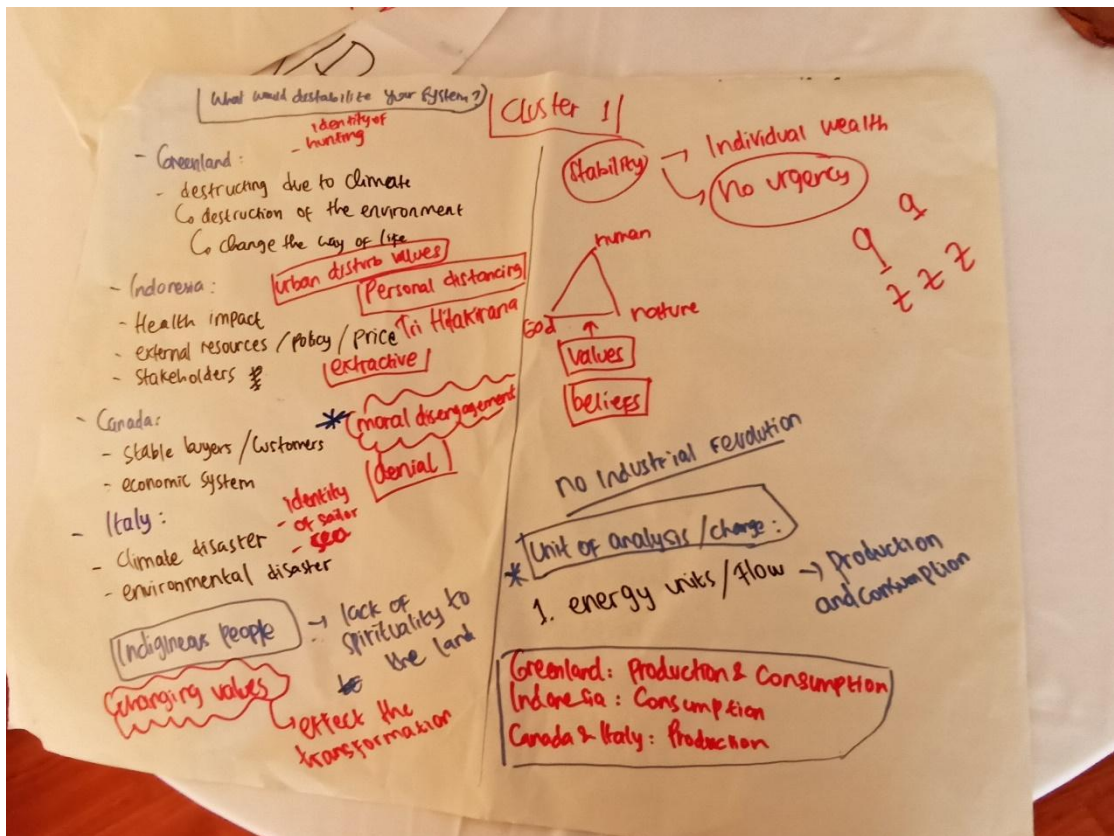 What would destabilize your system?
Cluster 1
identity of
hunting
- Greenland:
- destructing due to climate
destruction of the environment
change the way of life
urban disturb values
- Indonesia:
Personal distancing
- Health impact
Tri Hitakirana
- external resources / policy / price
extractive
- Stakeholders
- Canada:
* moral disengagement
- Stable buyers / customers
denial
- economic system
- Italy:
identity
- of sailor
- sea
- climate disaster
- environmental disaster
Indigineous people → lack of
spirituality to
the land
Changing values
→ effect the
transformation
Stability → Individual wealth
→ No urgency
9
9
z z z
human
God
nature
values
beliefs
no industrial revolution
Unit of analysis / change:
*
1. energy units / flow → production
and consumption
Greenland: Production & Consumption
Indonesia: Consumption
Canada & Italy: Production